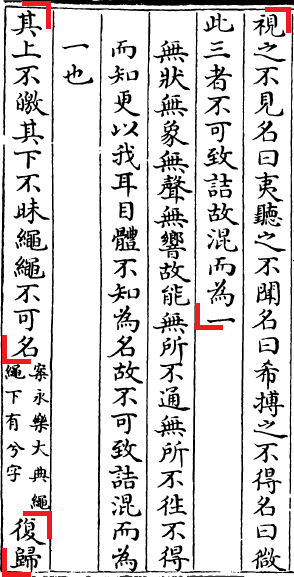 視之不見名曰夷聽之不聞名曰希搏之不得名曰微
此三者不可致詰故混而為一
無狀無象無聲無響故能無所不通無所不徃不得
而知更以我耳目體不知為名故不可致詰混而為
一也
其上不皦其下不昧繩繩不可名
案永樂大典繩
繩下有兮字
復歸